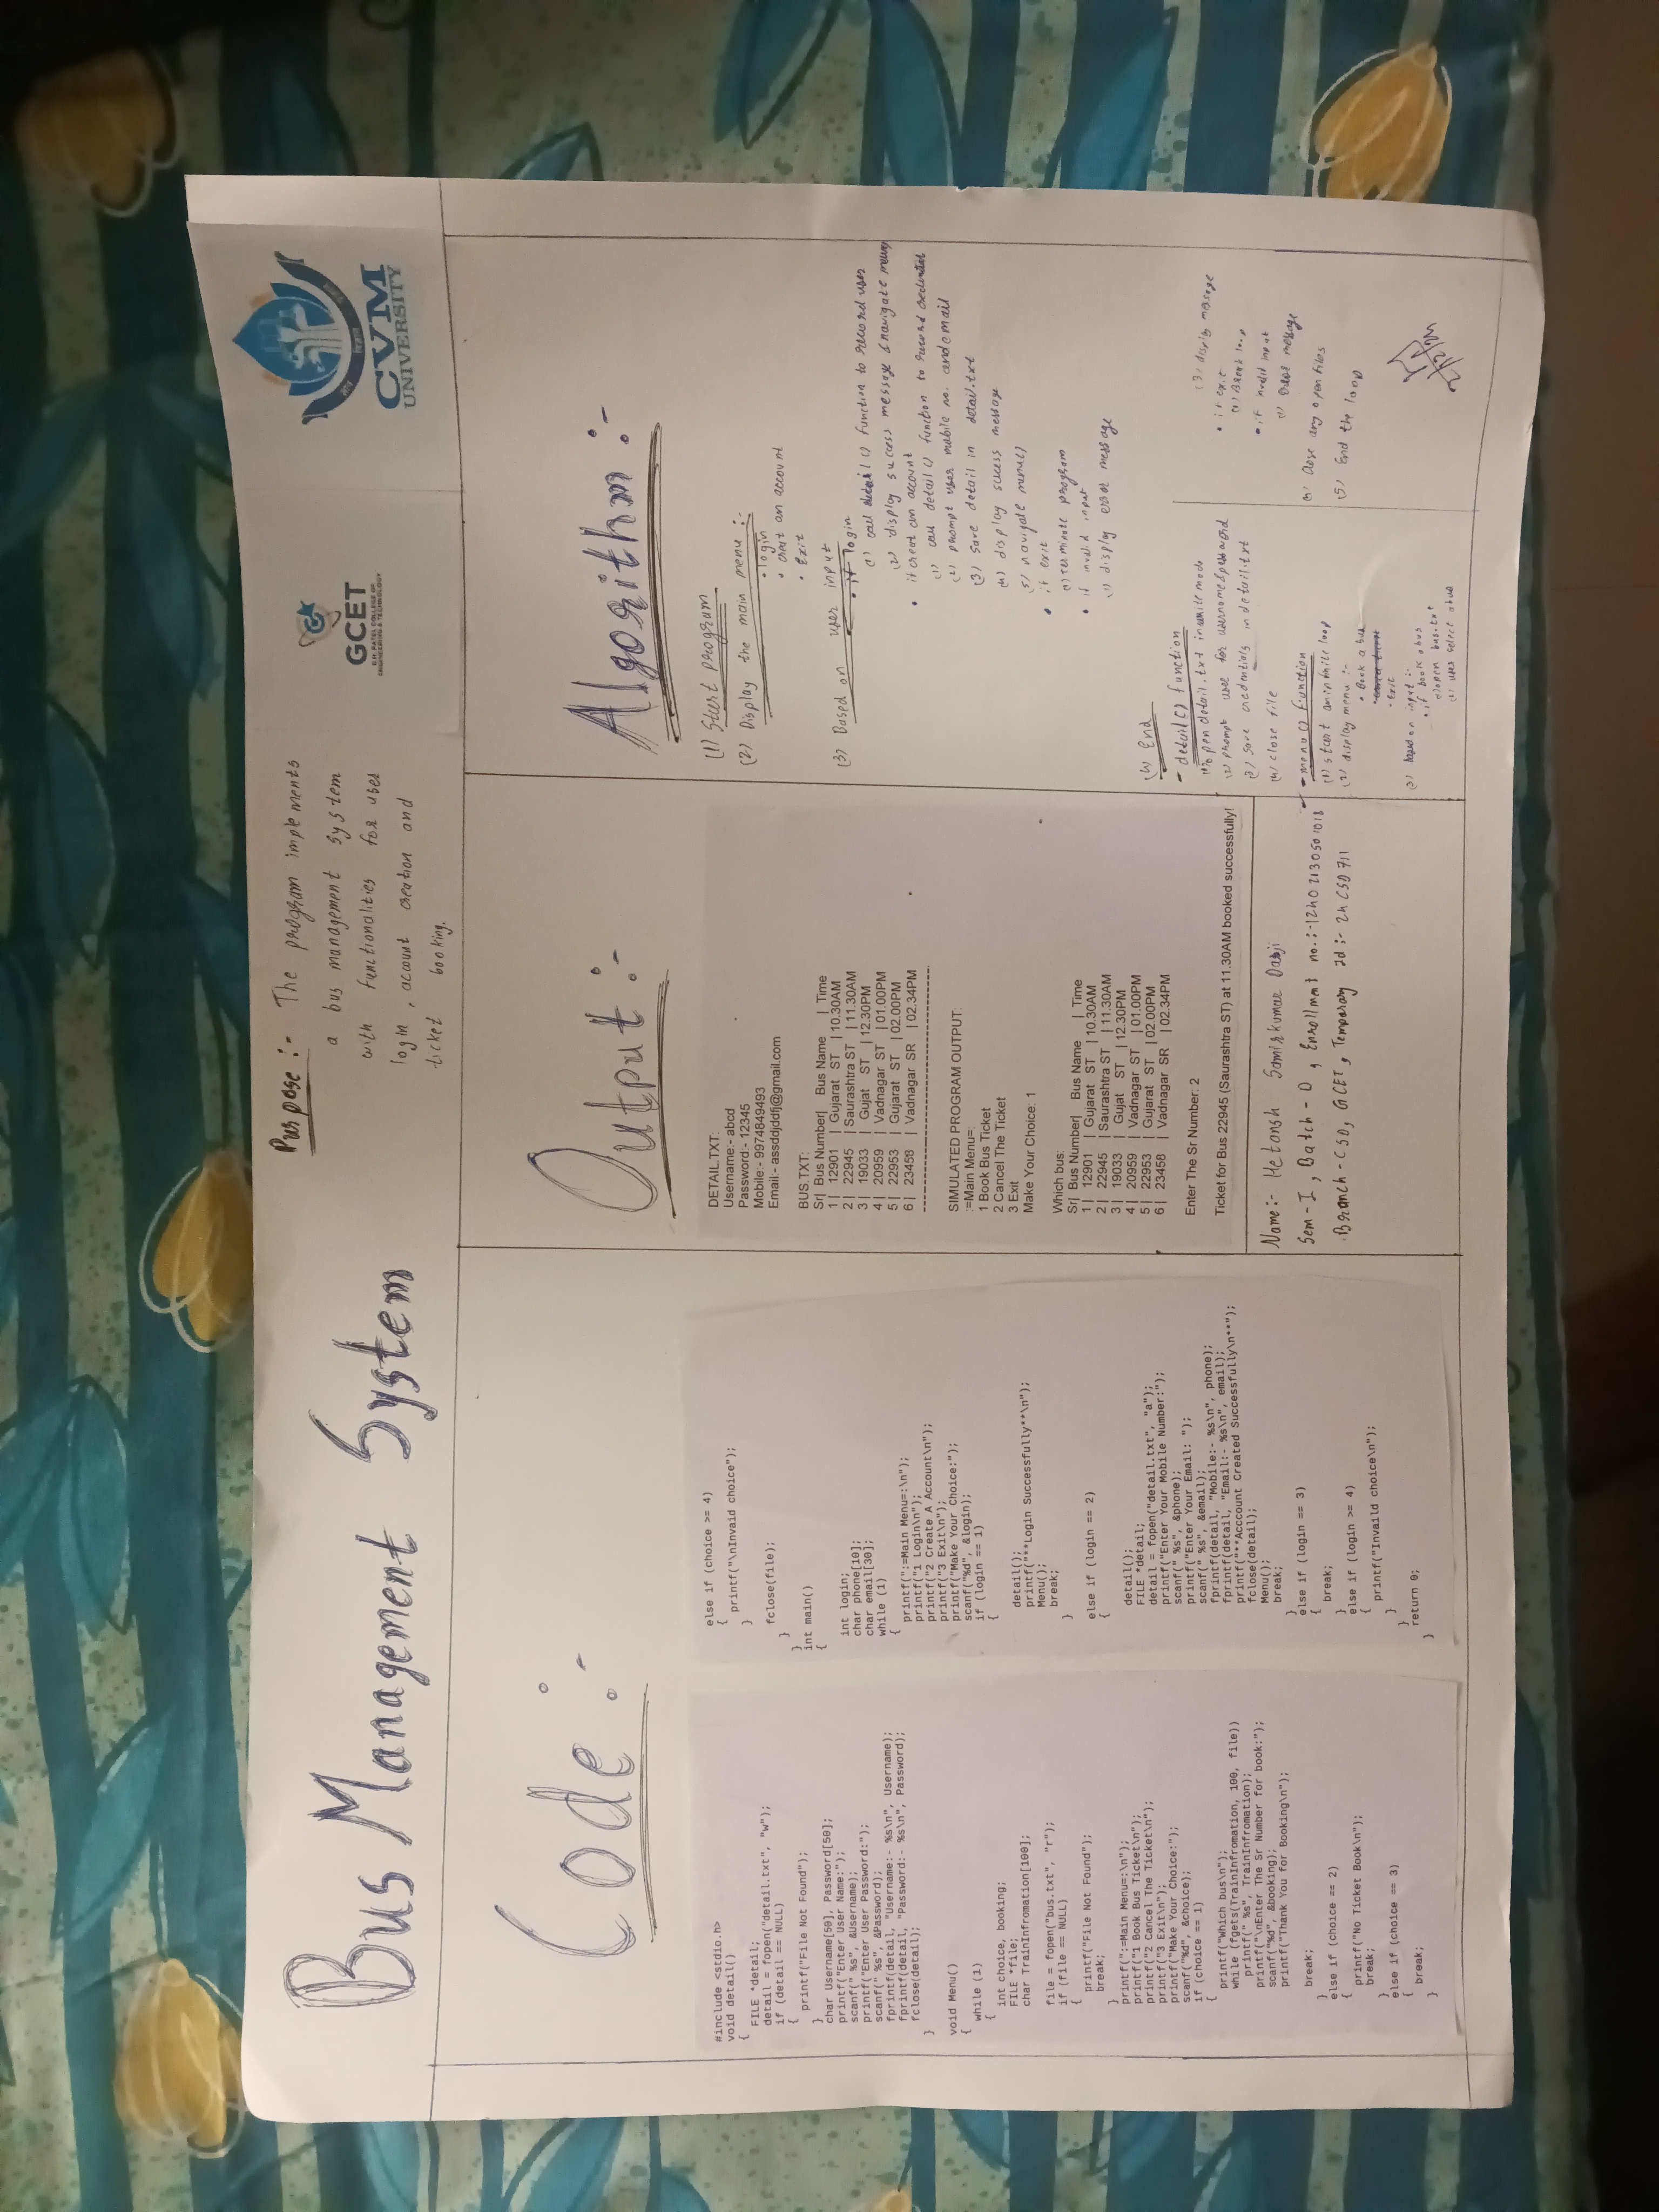 Bus Management System
Purpose :- The program implements
a bus management system
with functionalities for user
login , account creation and
ticket booking.
GCET
G.H. PATEL COLLEGE OF
ENGINEERING & TECHNOLOGY
CVM
UNIVERSITY
Code :-
#include <stdio.h>
void detail()
{
FILE *detail;
detail = fopen("detail.txt", "w");
if (detail == NULL)
{
printf("File Not Found");
}
char Username[50], Password[50];
printf("Enter User Name:");
scanf(" %s", &Username);
printf("Enter User Password:");
scanf(" %s", &Password);
fprintf(detail, "Username:- %s\n", Username);
fprintf(detail, "Password:- %s\n", Password);
fclose(detail);
}
void Menu()
{
while (1)
{
int choice, booking;
FILE *file;
char TrainInfromation[100];
file = fopen("bus.txt", "r");
if (file == NULL)
{
printf("File Not Found");
break;
}
printf(":=Main Menu=:\n");
printf("1 Book Bus Ticket\n");
printf("2 Cancel The Ticket\n");
printf("3 Exit\n");
printf("Make Your Choice:");
scanf("%d", &choice);
if (choice == 1)
{
printf("Which bus\n");
while (fgets(TrainInfromation, 100, file))
printf(" %s", TrainInfromation);
printf("\nEnter The Sr Number for book:");
scanf("%d", &booking);
printf("Thank You for Booking\n");
break;
}
else if (choice == 2)
{
printf("No Ticket Book\n");
break;
}
else if (choice == 3)
{
break;
}
else if (choice >= 4)
{
printf("\nInvaid choice");
}
fclose(file);
}
}
int main()
{
int login;
char phone[10];
char email[30];
while (1)
{
printf(":=Main Menu=:\n");
printf("1 Login\n");
printf("2 Create A Account\n");
printf("3 Exit\n");
printf("Make Your Choice:");
scanf("%d", &login);
if (login == 1)
{
detail();
printf("**Login Successfully**\n");
Menu();
break;
}
else if (login == 2)
{
detail();
FILE *detail;
detail = fopen("detail.txt", "a");
printf("Enter Your Mobile Number:");
scanf(" %s", &phone);
printf("Enter Your Email: ");
scanf(" %s", &email);
fprintf(detail, "Mobile:- %s\n", phone);
fprintf(detail, "Email:- %s\n", email);
printf("**Acccount Created Successfully\n**");
fclose(detail);
Menu();
break;
}
else if (login == 3)
{
break;
}
else if (login >= 4)
{
printf("Invaild choice\n");
}
}
return 0;
}
Output :-
DETAIL.TXT:
Username:- abcd
Password:- 12345
Mobile:- 9974849493
Email:- assddjddfj@gmail.com
BUS.TXT:
Sr| Bus Number| Bus Name | Time
1 | 12901 | Gujarat ST | 10.30AM
2 | 22945 | Saurashtra ST | 11.30AM
3 | 19033 | Gujat ST | 12.30PM
4 | 20959 | Vadnagar ST | 01.00PM
5 | 22953 | Gujarat ST | 02.00PM
6 | 23458 | Vadnagar SR | 02.34PM
--------------------------------------------------
SIMULATED PROGRAM OUTPUT:
:=Main Menu=:
1 Book Bus Ticket
2 Cancel The Ticket
3 Exit
Make Your Choice: 1
Which bus:
Sr| Bus Number| Bus Name | Time
1 | 12901 | Gujarat ST | 10.30AM
2 | 22945 | Saurashtra ST | 11.30AM
3 | 19033 | Gujat ST | 12.30PM
4 | 20959 | Vadnagar ST | 01.00PM
5 | 22953 | Gujarat ST | 02.00PM
6 | 23458 | Vadnagar SR | 02.34PM
Enter The Sr Number: 2
Ticket for Bus 22945 (Saurashtra ST) at 11.30AM booked successfully!
Name:- Hetansh Samirkumar Darji
Sem-I, Batch-D, Enrollment no.:-12402130501018
Branch-CSD, GCET, Temporary Id:- 24CSD711
Algorithm :-
(1) Start program
(2) Display the main menu :-
• login
• creat an account
• Exit
(3) Based on user input
• if login
(1) call detail() function to record user
(2) display success message & navigate menu
• if creat an account
(1) call detail() function to record credential
(2) prompt user mobile no. and email
(3) Save detail in detail.txt
(4) display sucess message
(5) navigate menu()
• if exit
(1) terminate program
• if invalid input
(1) display error message
(4) End
- detail() function
(1) open detail.txt in write mode
(2) prompt user for username & password
(3) save credentials in detail.txt
(4) close file
- menu() function
(1) start an infinite loop
(2) display menu :-
• Book a bus
• Exit
(3) Based on input :-
• if book a bus
(1) open bus.txt
(2) user select a bus
(3) display message
• if exit
(1) Break loop
• if invalid input
(1) error message
(4) Close any open files
(5) End the loop
2/12/24